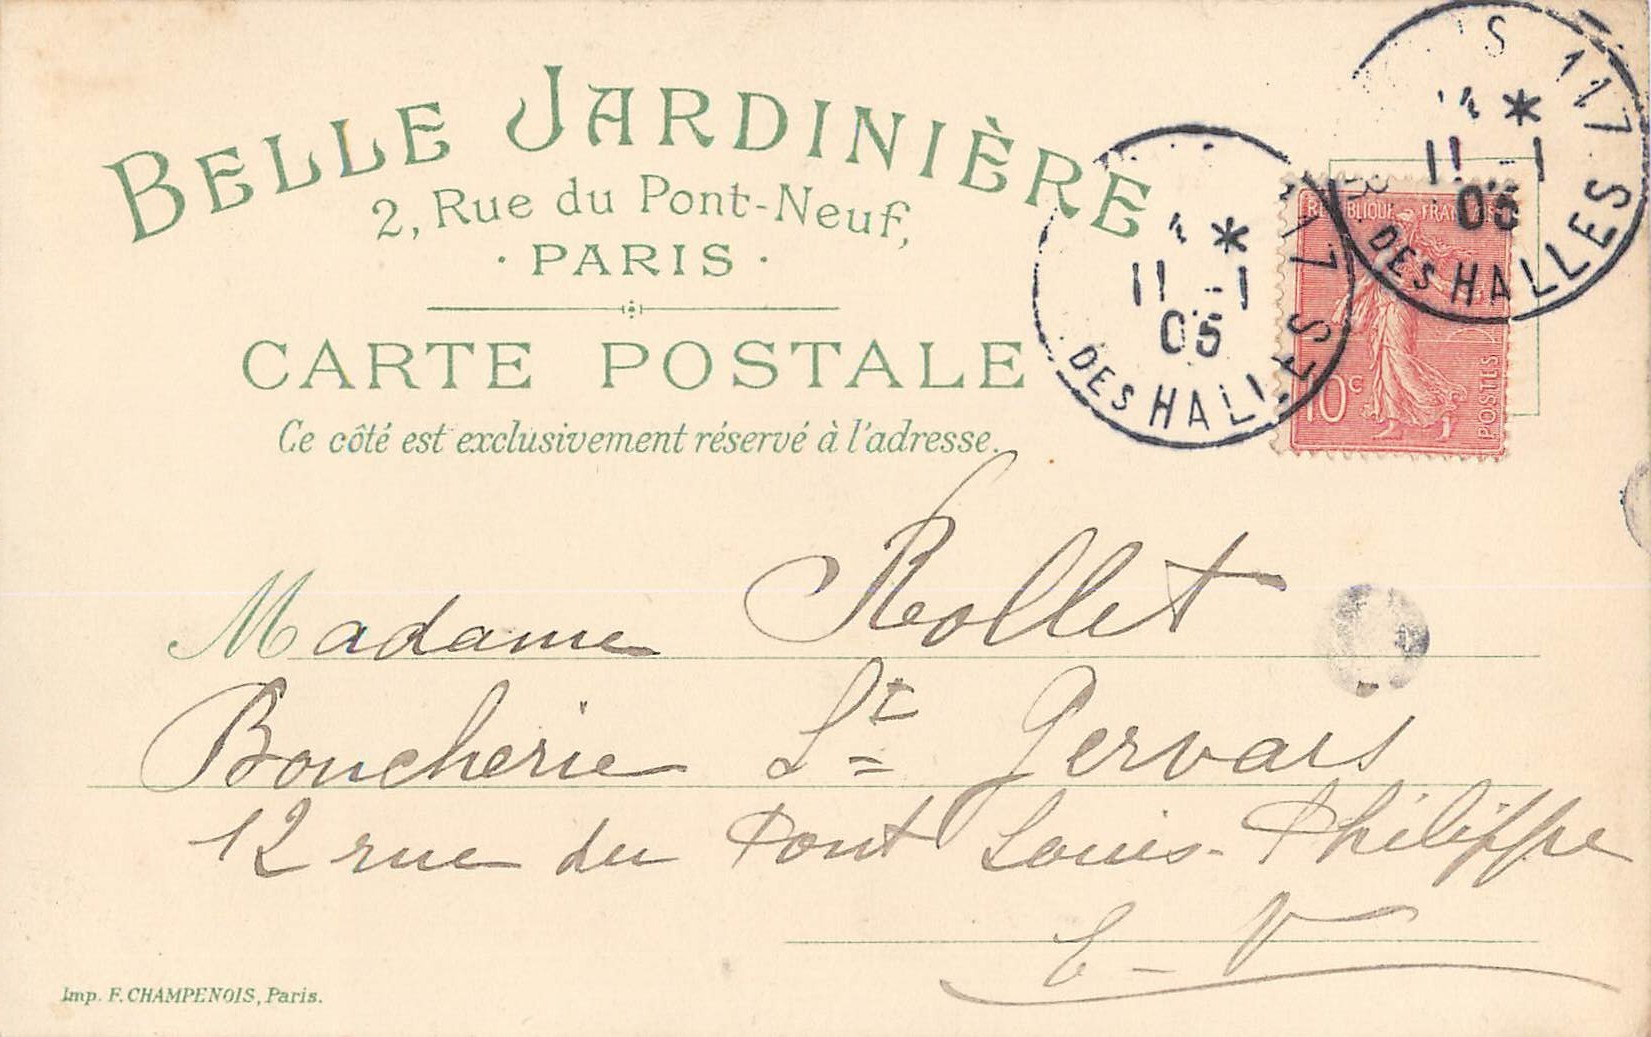 BELLE JARDINIÈRE
2, Rue du Pont-Neuf,
· PARIS ·
CARTE POSTALE
Ce côté est exclusivement réservé à l'adresse.
S 117
4 *
11 -1
05
DES HALLES
17
4 *
11 -1
05
DES HALLES
RÉPUBLIQUE FRANÇAISE
10c
POSTES
Madame Rollet
Boucherie St Gervais
12 rue du Pont Louis-Philippe
E-V
Imp. F. CHAMPENOIS, Paris.